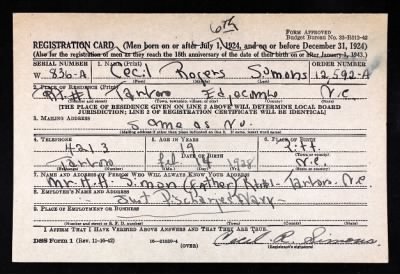 6th
FORM APPROVED
Budget Bureau No. 33-R112-42
REGISTRATION CARD—(Men born on or after July 1, 1924, and on or before December 31, 1924)
(Also for the registration of men as they reach the 18th anniversary of the date of their birth on or after January 1, 1943.)
SERIAL NUMBER 1. NAME (Print) ORDER NUMBER
W 836-A Cecil Rogers Simons 12,592-A
2. PLACE OF RESIDENCE (Print)
Tarboro Edgecombe N.C.
(Town, township, village, or city) (County) (State)
[THE PLACE OF RESIDENCE GIVEN ON LINE 2 ABOVE WILL DETERMINE LOCAL BOARD
JURISDICTION; LINE 2 OF REGISTRATION CERTIFICATE WILL BE IDENTICAL]
3. MAILING ADDRESS
Same as No.
[Mailing address if other than place indicated on line 2. If same, insert word same]
4. TELEPHONE 5. AGE IN YEARS 6. PLACE OF BIRTH
4213 19 Pitt
DATE OF BIRTH (Town or county)
Tarboro Feb 14 N.C.
(Exchange) (Number) (Mo.) (Day) (Yr.) (State or country)
7. NAME AND ADDRESS OF PERSON WHO WILL ALWAYS KNOW YOUR ADDRESS
Mr. Simon (Father) Tarboro N.C.
8. EMPLOYER'S NAME AND ADDRESS
Just Discharged Navy
9. PLACE OF EMPLOYMENT OR BUSINESS
(Number and street or R. F. D. number) (Town) (County) (State)
I AFFIRM THAT I HAVE VERIFIED ABOVE ANSWERS AND THAT THEY ARE TRUE.
DSS Form 1 (Rev. 11-16-42) 16—21630-4 Cecil R. Simons
(OVER) (Registrant's signature)